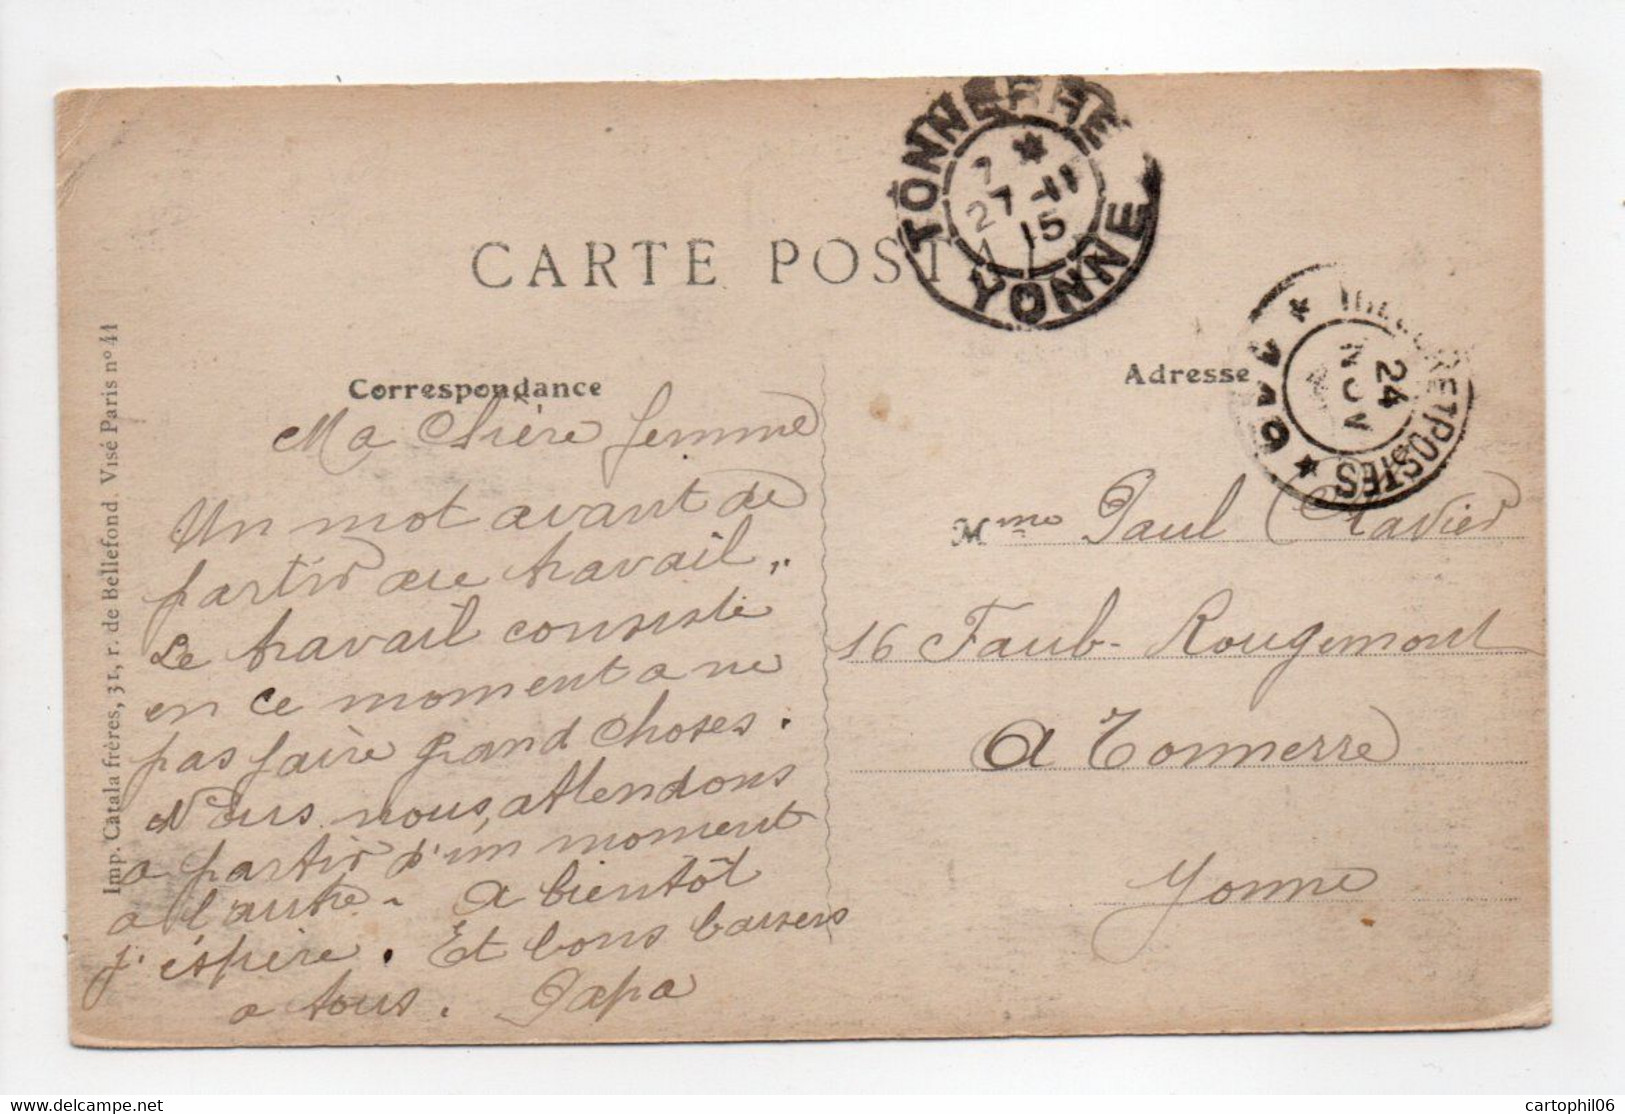 CARTE POSTALE
TONNERRE
7 *
27 -11
15
YONNE
TRESOR ET POSTES
24
NOV
* *
Correspondance
Adresse
Imp. Catala frères, 31, r. de Bellefond. Visé Paris n° 41
Ma Chière femme
Un mot avant de
partir au travail,,
Le travail consiste
en ce moment a ne
pas faire grand choses.
Nous nous attendons
a partir d'un moment
a l'autre - A bientôt
j'éspère. Et bons baisers
a tous. Papa
Mme Paul Clavier
16 Faub- Rougemont
A Tonnerre
Yonne
cartophil06